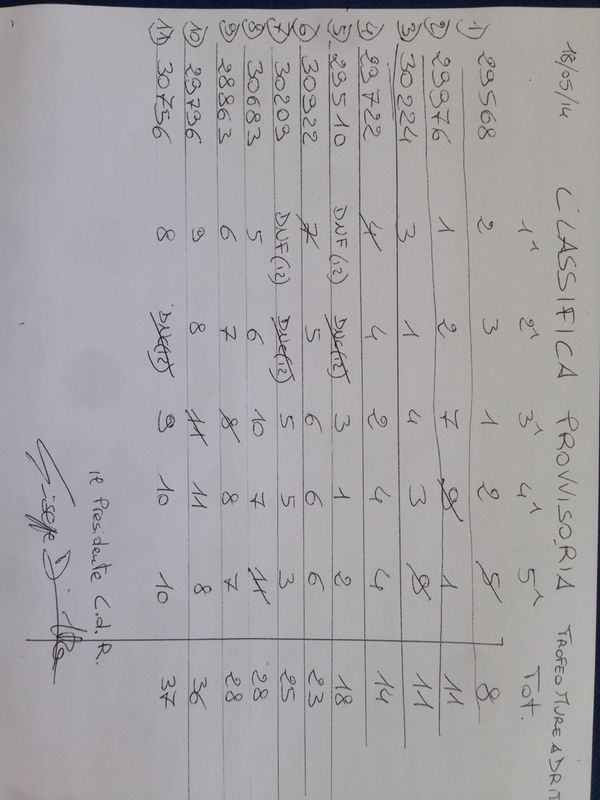 18/05/14 CLASSIFICA PROVVISORIA TROFEO MURE A DRIT
1^ 2^ 3^ 4^ 5^ Tot.
1) 29568 2 3 1 2 5 8
2) 29976 1 2 7 9 1 11
3) 30224 3 1 4 3 9 11
4) 29722 4 4 2 4 4 14
5) 29510 DNF(12) DNC(12) 3 1 2 18
6) 30922 7 5 6 6 6 23
7) 30209 DNF(12) DNC(12) 5 5 3 25
8) 30683 5 6 10 7 11 28
9) 28863 6 7 8 8 7 28
10) 29796 9 8 11 11 8 36
11) 30796 8 DNC(12) 9 10 10 37
Il Presidente C.d.R.